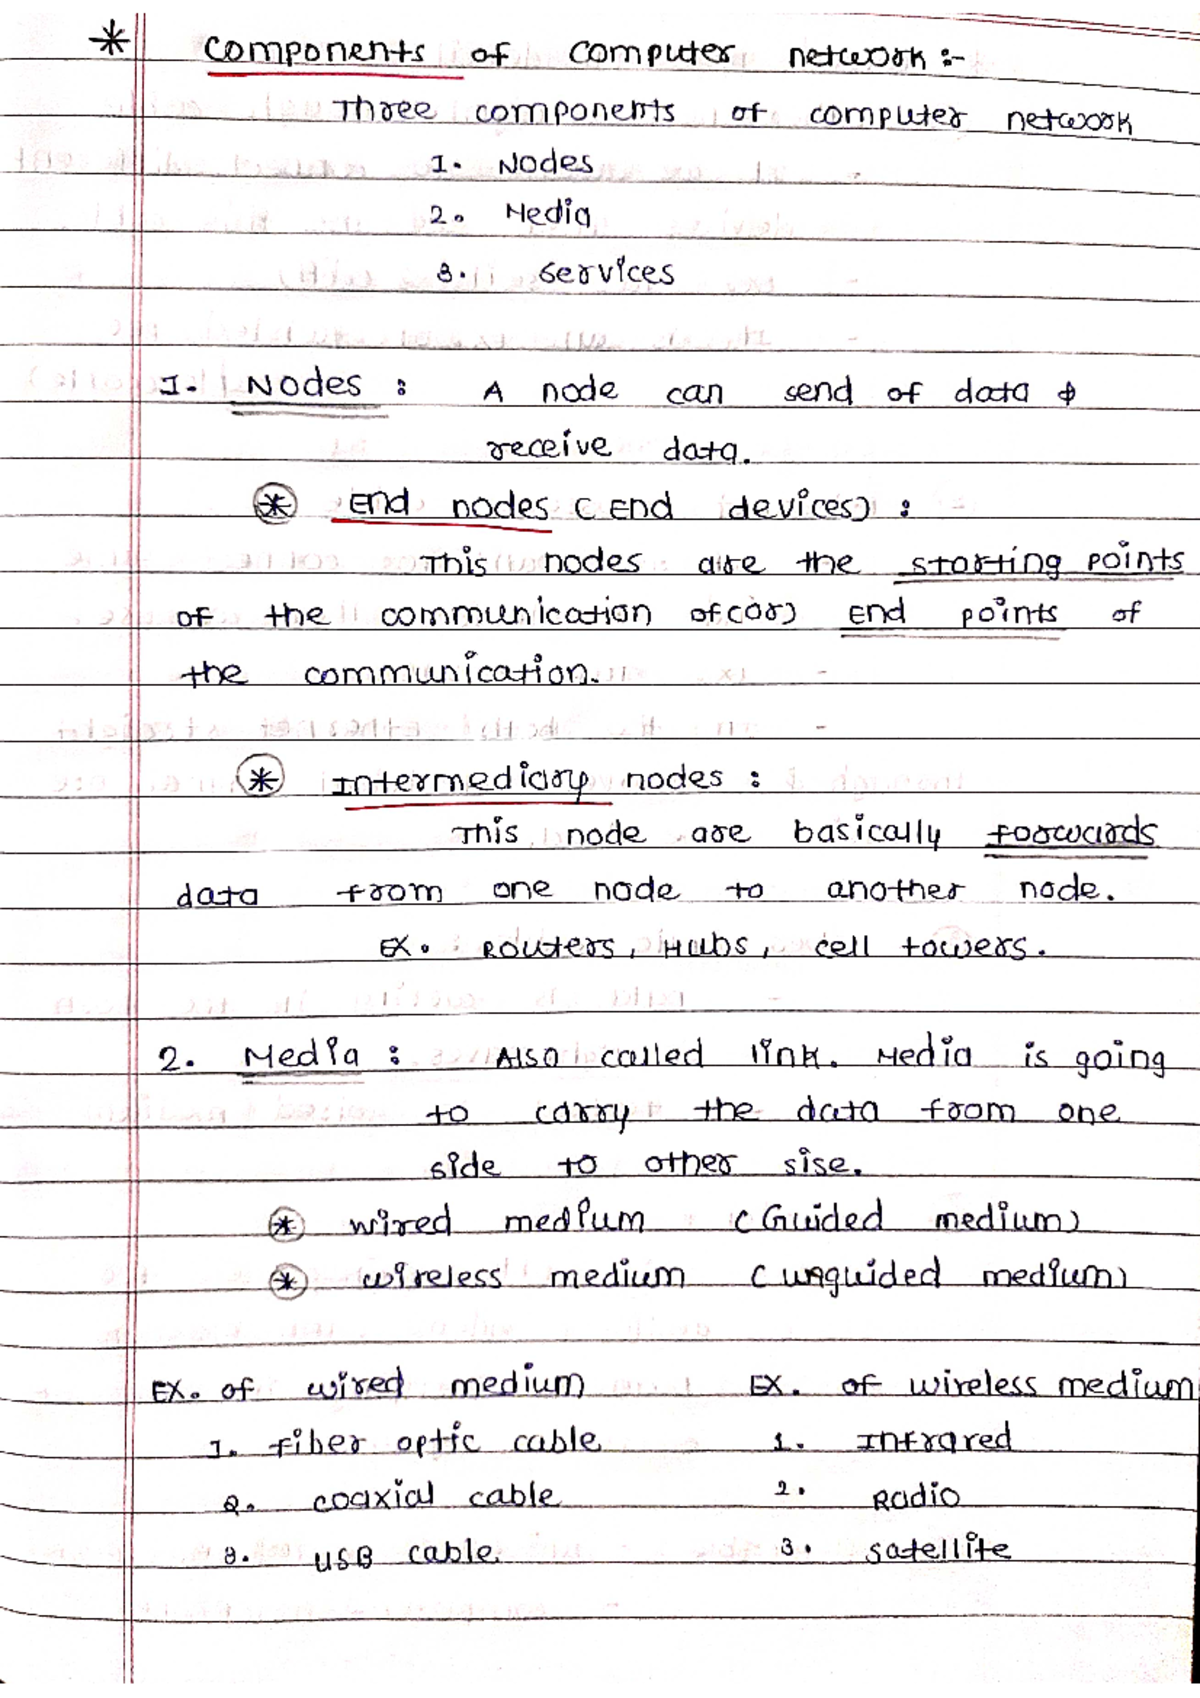 * Components of computer network :-
Three components of computer network
1. Nodes
2. Media
3. Services
1. Nodes : A node can send of data &
receive data.
* End nodes (End devices) :
This nodes are the starting points
of the communication of(or) End points of
the communication.
* Intermediary nodes :
This node are basically forwards
data from one node to another node.
EX. Routers, Hubs, cell towers.
2. Media : Also called link. Media is going
to carry the data from one
side to other sise.
* wired medium (Guided medium)
* wireless medium (unguided medium)
EX. of wired medium EX. of wireless medium
1. Fiber optic cable 1. Infrared
2. coaxial cable 2. Radio
3. USB cable. 3. satellite